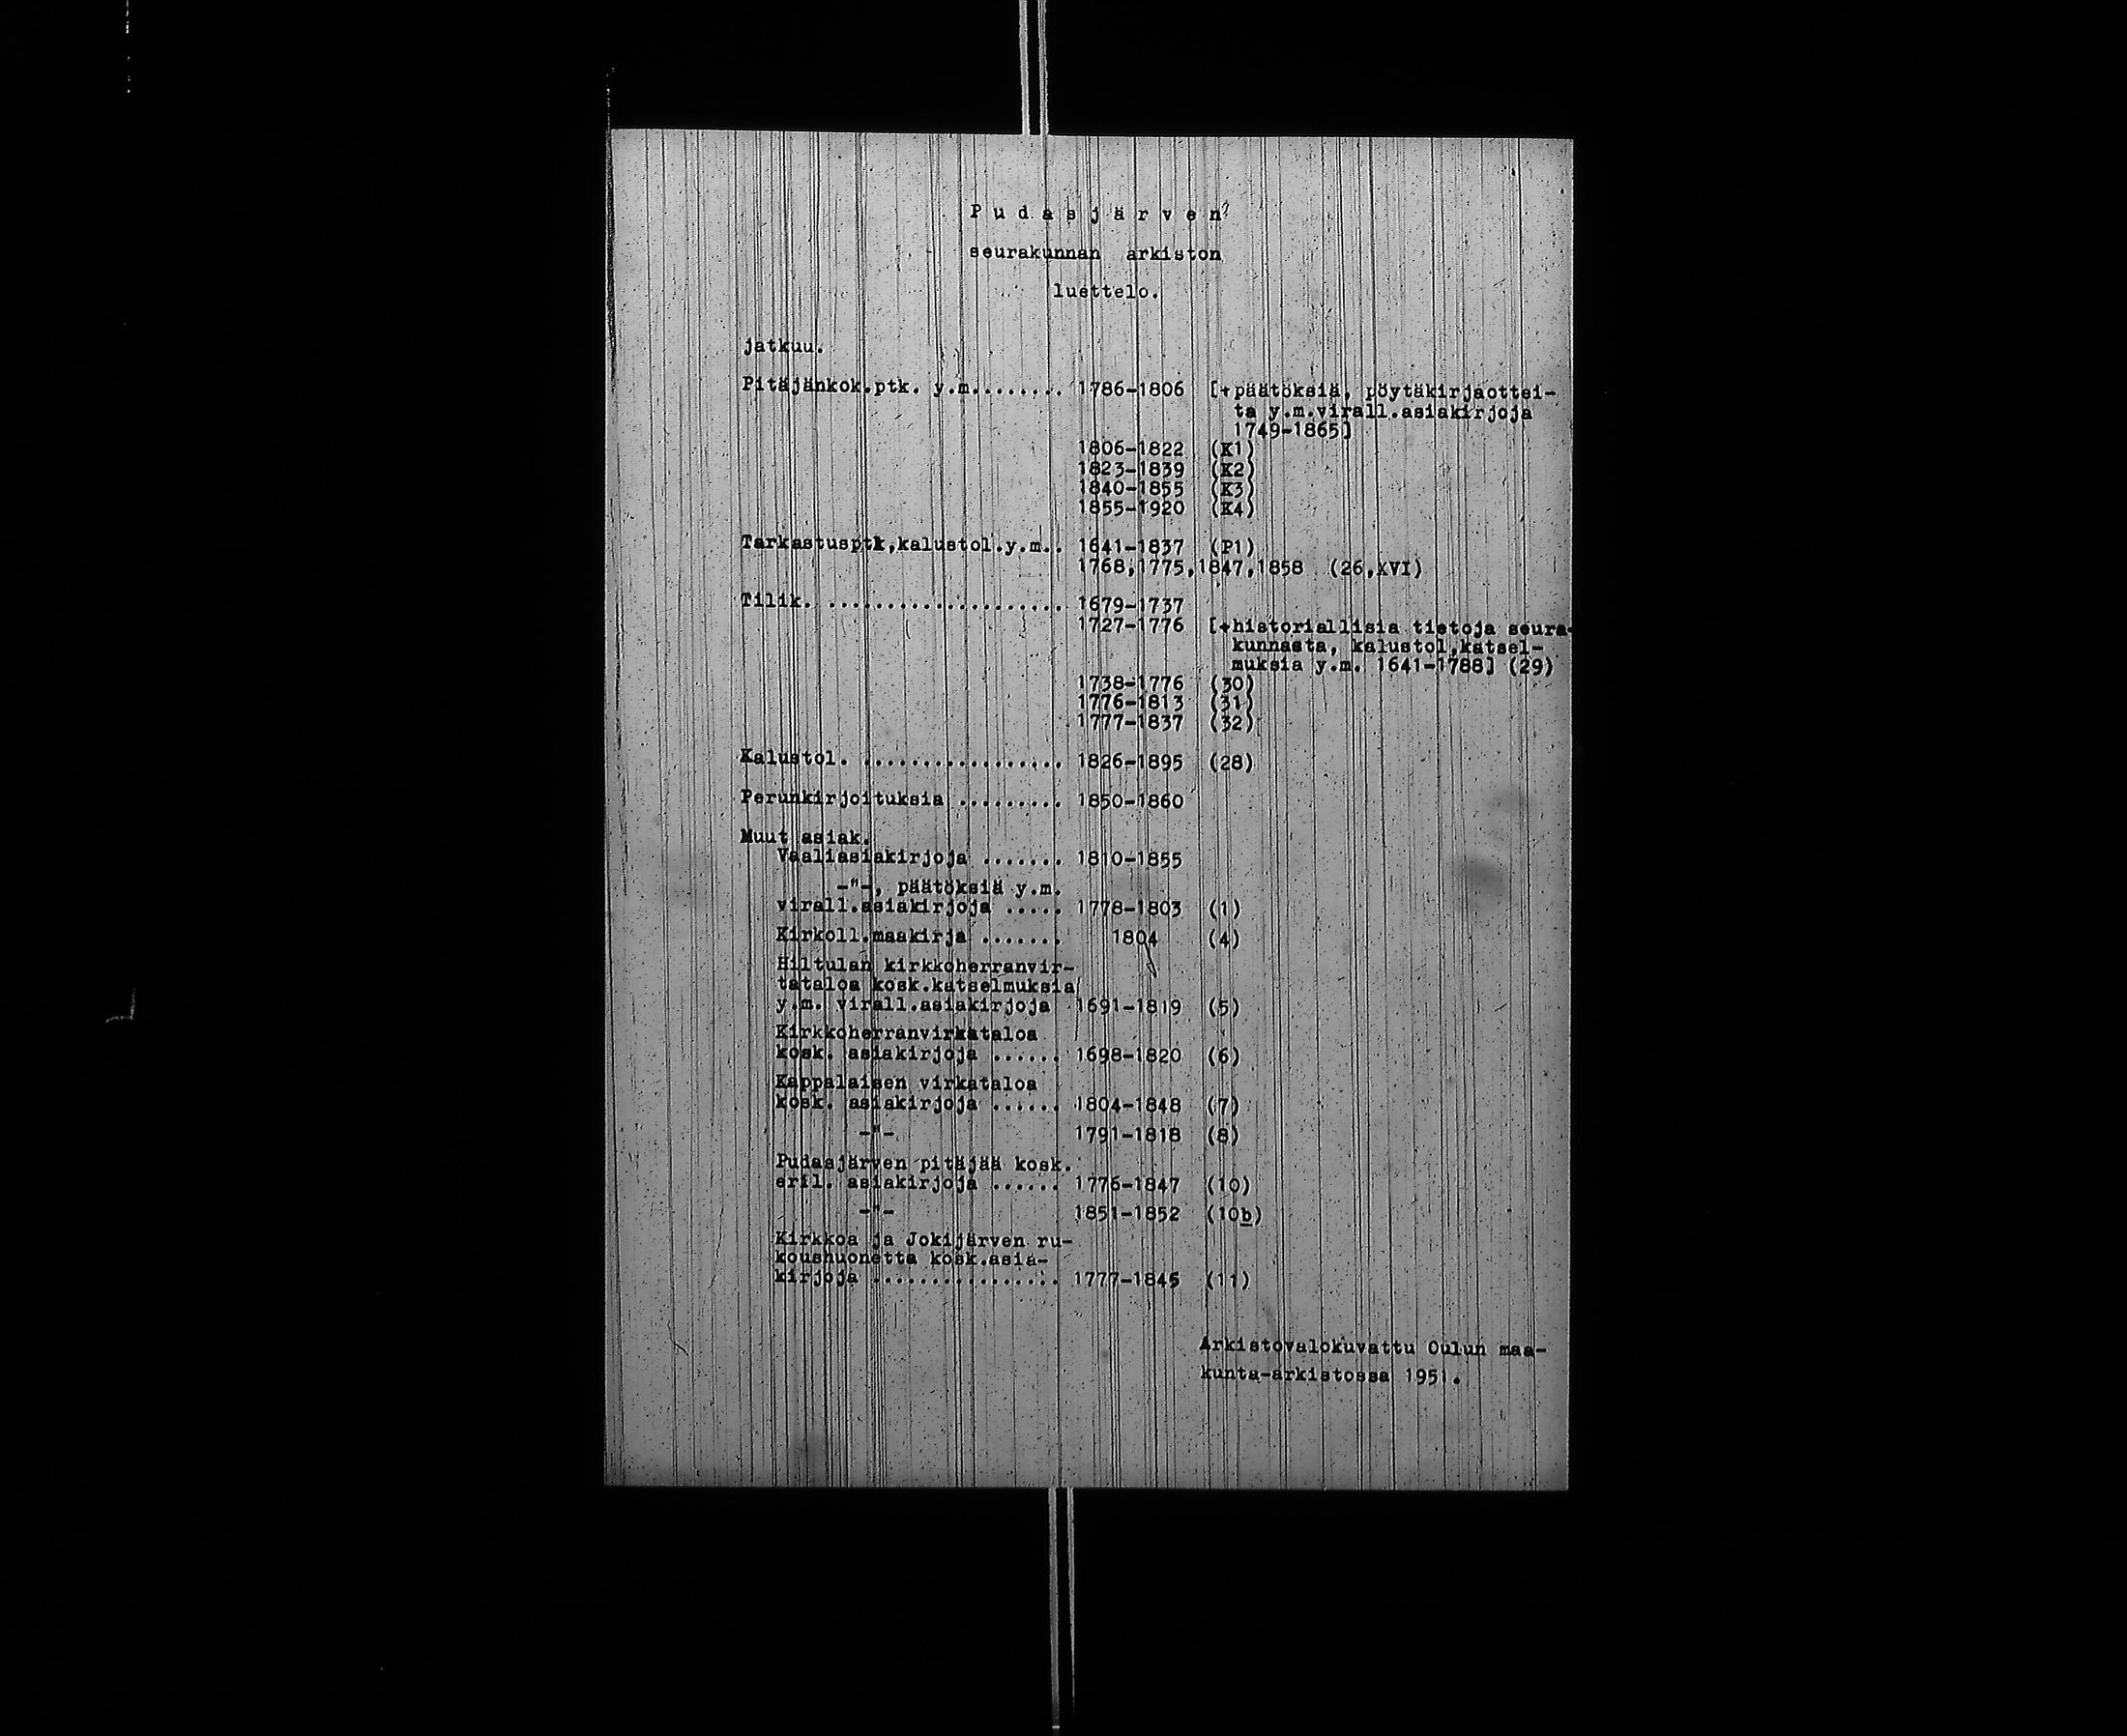 Pudasjärven
seurakunnan arkiston
luettelo.
jatkuu.
Pitäjänkok.ptk. y.m........ 1786-1806 [+päätöksiä, pöytäkirjaottei-
ta y.m.virall.asiakirjoja
1749-1865]
1806-1822 (K1)
1823-1839 (K2)
1840-1855 (K3)
1855-1920 (K4)
Tarkastusptk,kalustol.y.m.. 1641-1837 (P1)
1768,1775,1847,1858 (26,XVI)
Tilik. .................... 1679-1737
1727-1776 [+historiallisia tietoja seura-
kunnasta, kalustol,katsel-
muksia y.m. 1641-1788] (29)
1738-1776 (30)
1776-1813 (31)
1777-1837 (32)
Kalustol. ................. 1826-1895 (28)
Perunkirjoituksia ......... 1850-1860
Muut asiak.
Vaaliasiakirjoja ....... 1810-1855
-"-, päätöksiä y.m.
virall.asiakirjoja ..... 1778-1803 (1)
Kirkoll.maakirja ....... 1804 (4)
Hiltulan kirkkoherranvir-
tataloa kosk.katselmuksia
y.m. virall.asiakirjoja 1691-1819 (5)
Kirkkoherranvirkataloa
kosk. asiakirjoja ...... 1698-1820 (6)
Kappalaisen virkataloa
kosk. asiakirjoja ...... 1804-1848 (7)
-"- 1791-1818 (8)
Pudasjärven pitäjää kosk.
eril. asiakirjoja ...... 1776-1847 (10)
-"- 1851-1852 (10b)
Kirkkoa ja Jokijärven ru-
koushuonetta kosk.asia-
kirjoja ................ 1777-1845 (11)
Arkistovalokuvattu Oulun maa-
kunta-arkistossa 1951.